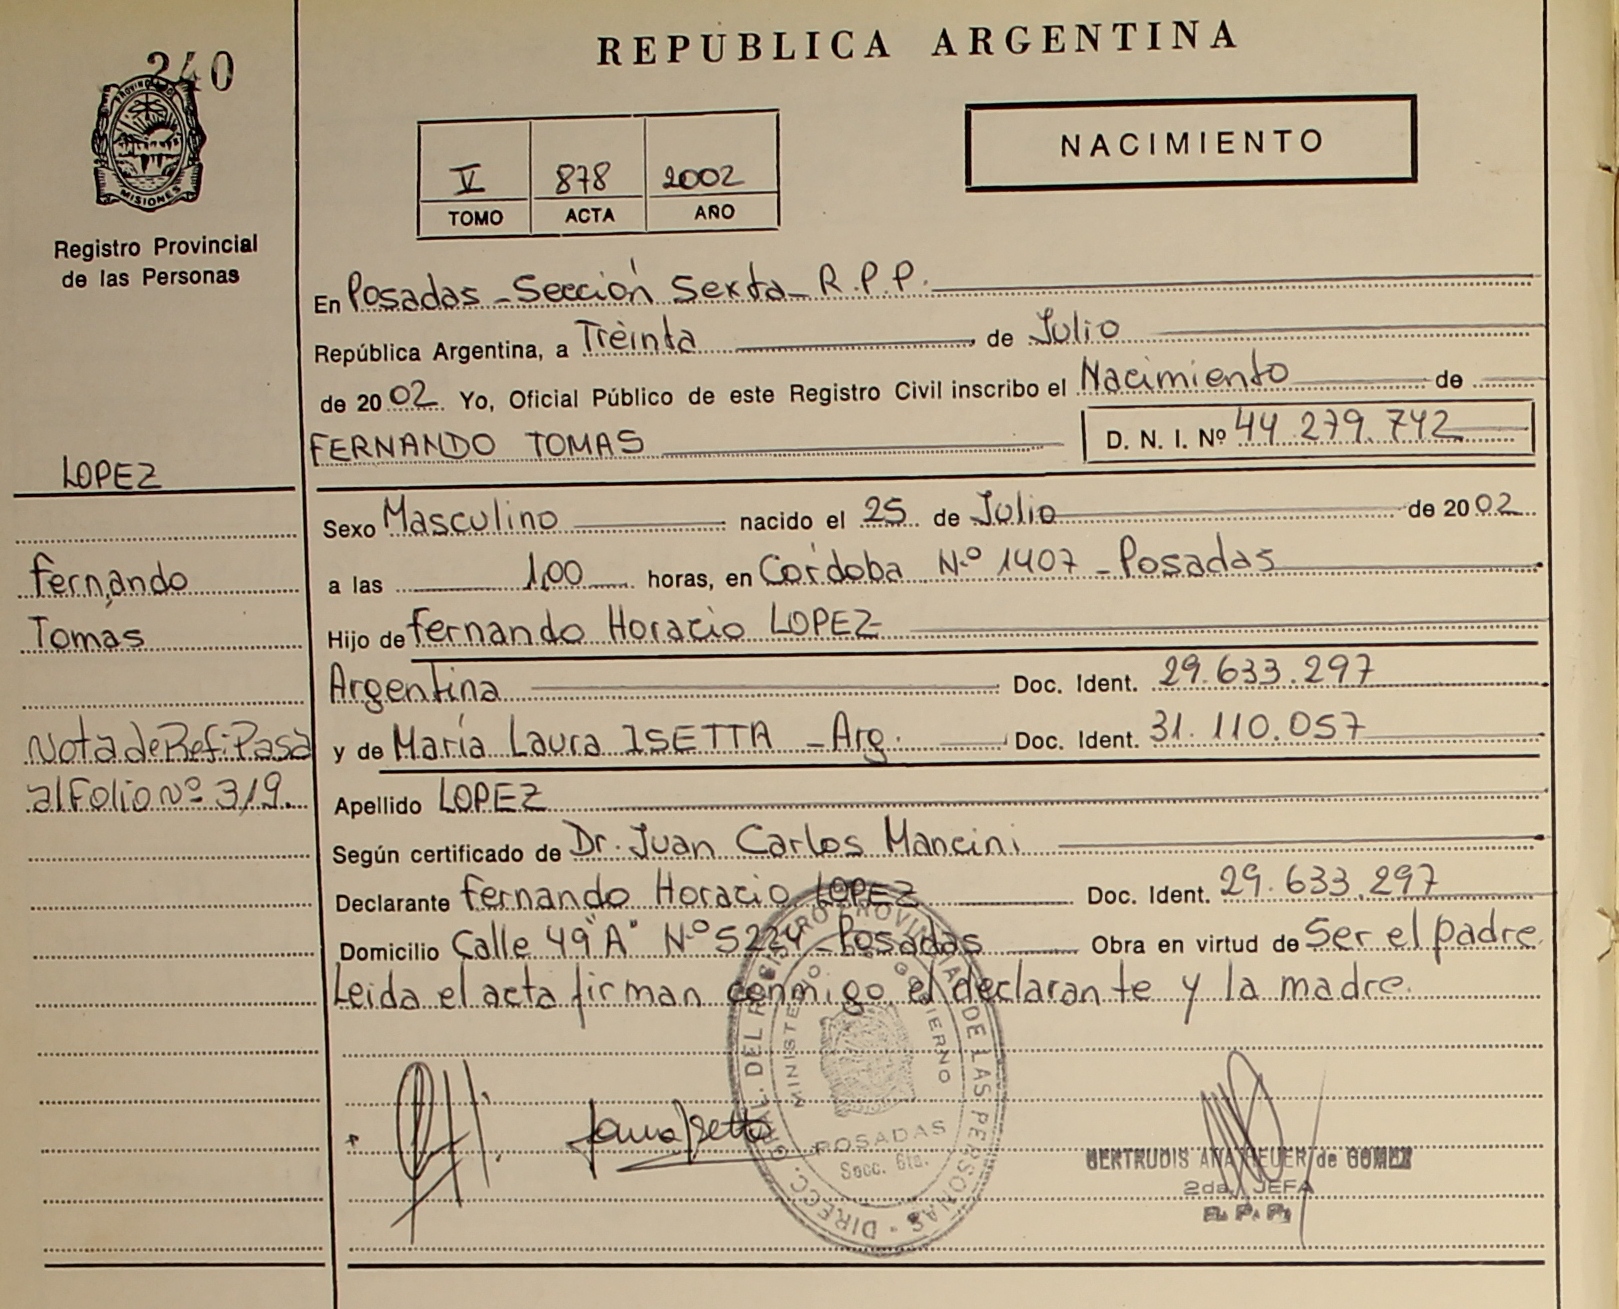 REPUBLICA ARGENTINA
240
PROVINCIA DE
MISIONES
Registro Provincial
de las Personas
NACIMIENTO
V 878 2002
TOMO ACTA AÑO
En Posadas - Sección Sexta - R.P.P.
República Argentina, a Treinta de Julio
de 2002 Yo, Oficial Público de este Registro Civil inscribo el Nacimiento de
FERNANDO TOMAS D. N. I. Nº 44.279.742
LOPEZ
Sexo Masculino nacido el 25 de Julio de 2002
Fernando
a las 1,00 horas, en Córdoba Nº 1407 - Posadas
Tomas
Hijo de Fernando Horacio LOPEZ
Argentina Doc. Ident. 29.633.297
Nota de Ref: Pasa
y de María Laura ISETTA - Arg. Doc. Ident. 31.110.057
al Folio Nº 319.
Apellido LOPEZ
Según certificado de Dr. Juan Carlos Mancini
Declarante Fernando Horacio LOPEZ Doc. Ident. 29.633.297
Domicilio Calle 49 "A" Nº 5224 - Posadas Obra en virtud de Ser el padre
Leida el acta firman conmigo el declarante y la madre.
DIRECC. GRAL. DEL REGISTRO PROVINCIAL DE LAS PERSONAS
MINISTERIO DE GOBIERNO
POSADAS
Secc. 6ta.
Laura Isetta
GERTRUDIS ANA de GOMEZ
2da. JEFA
R. P. P.